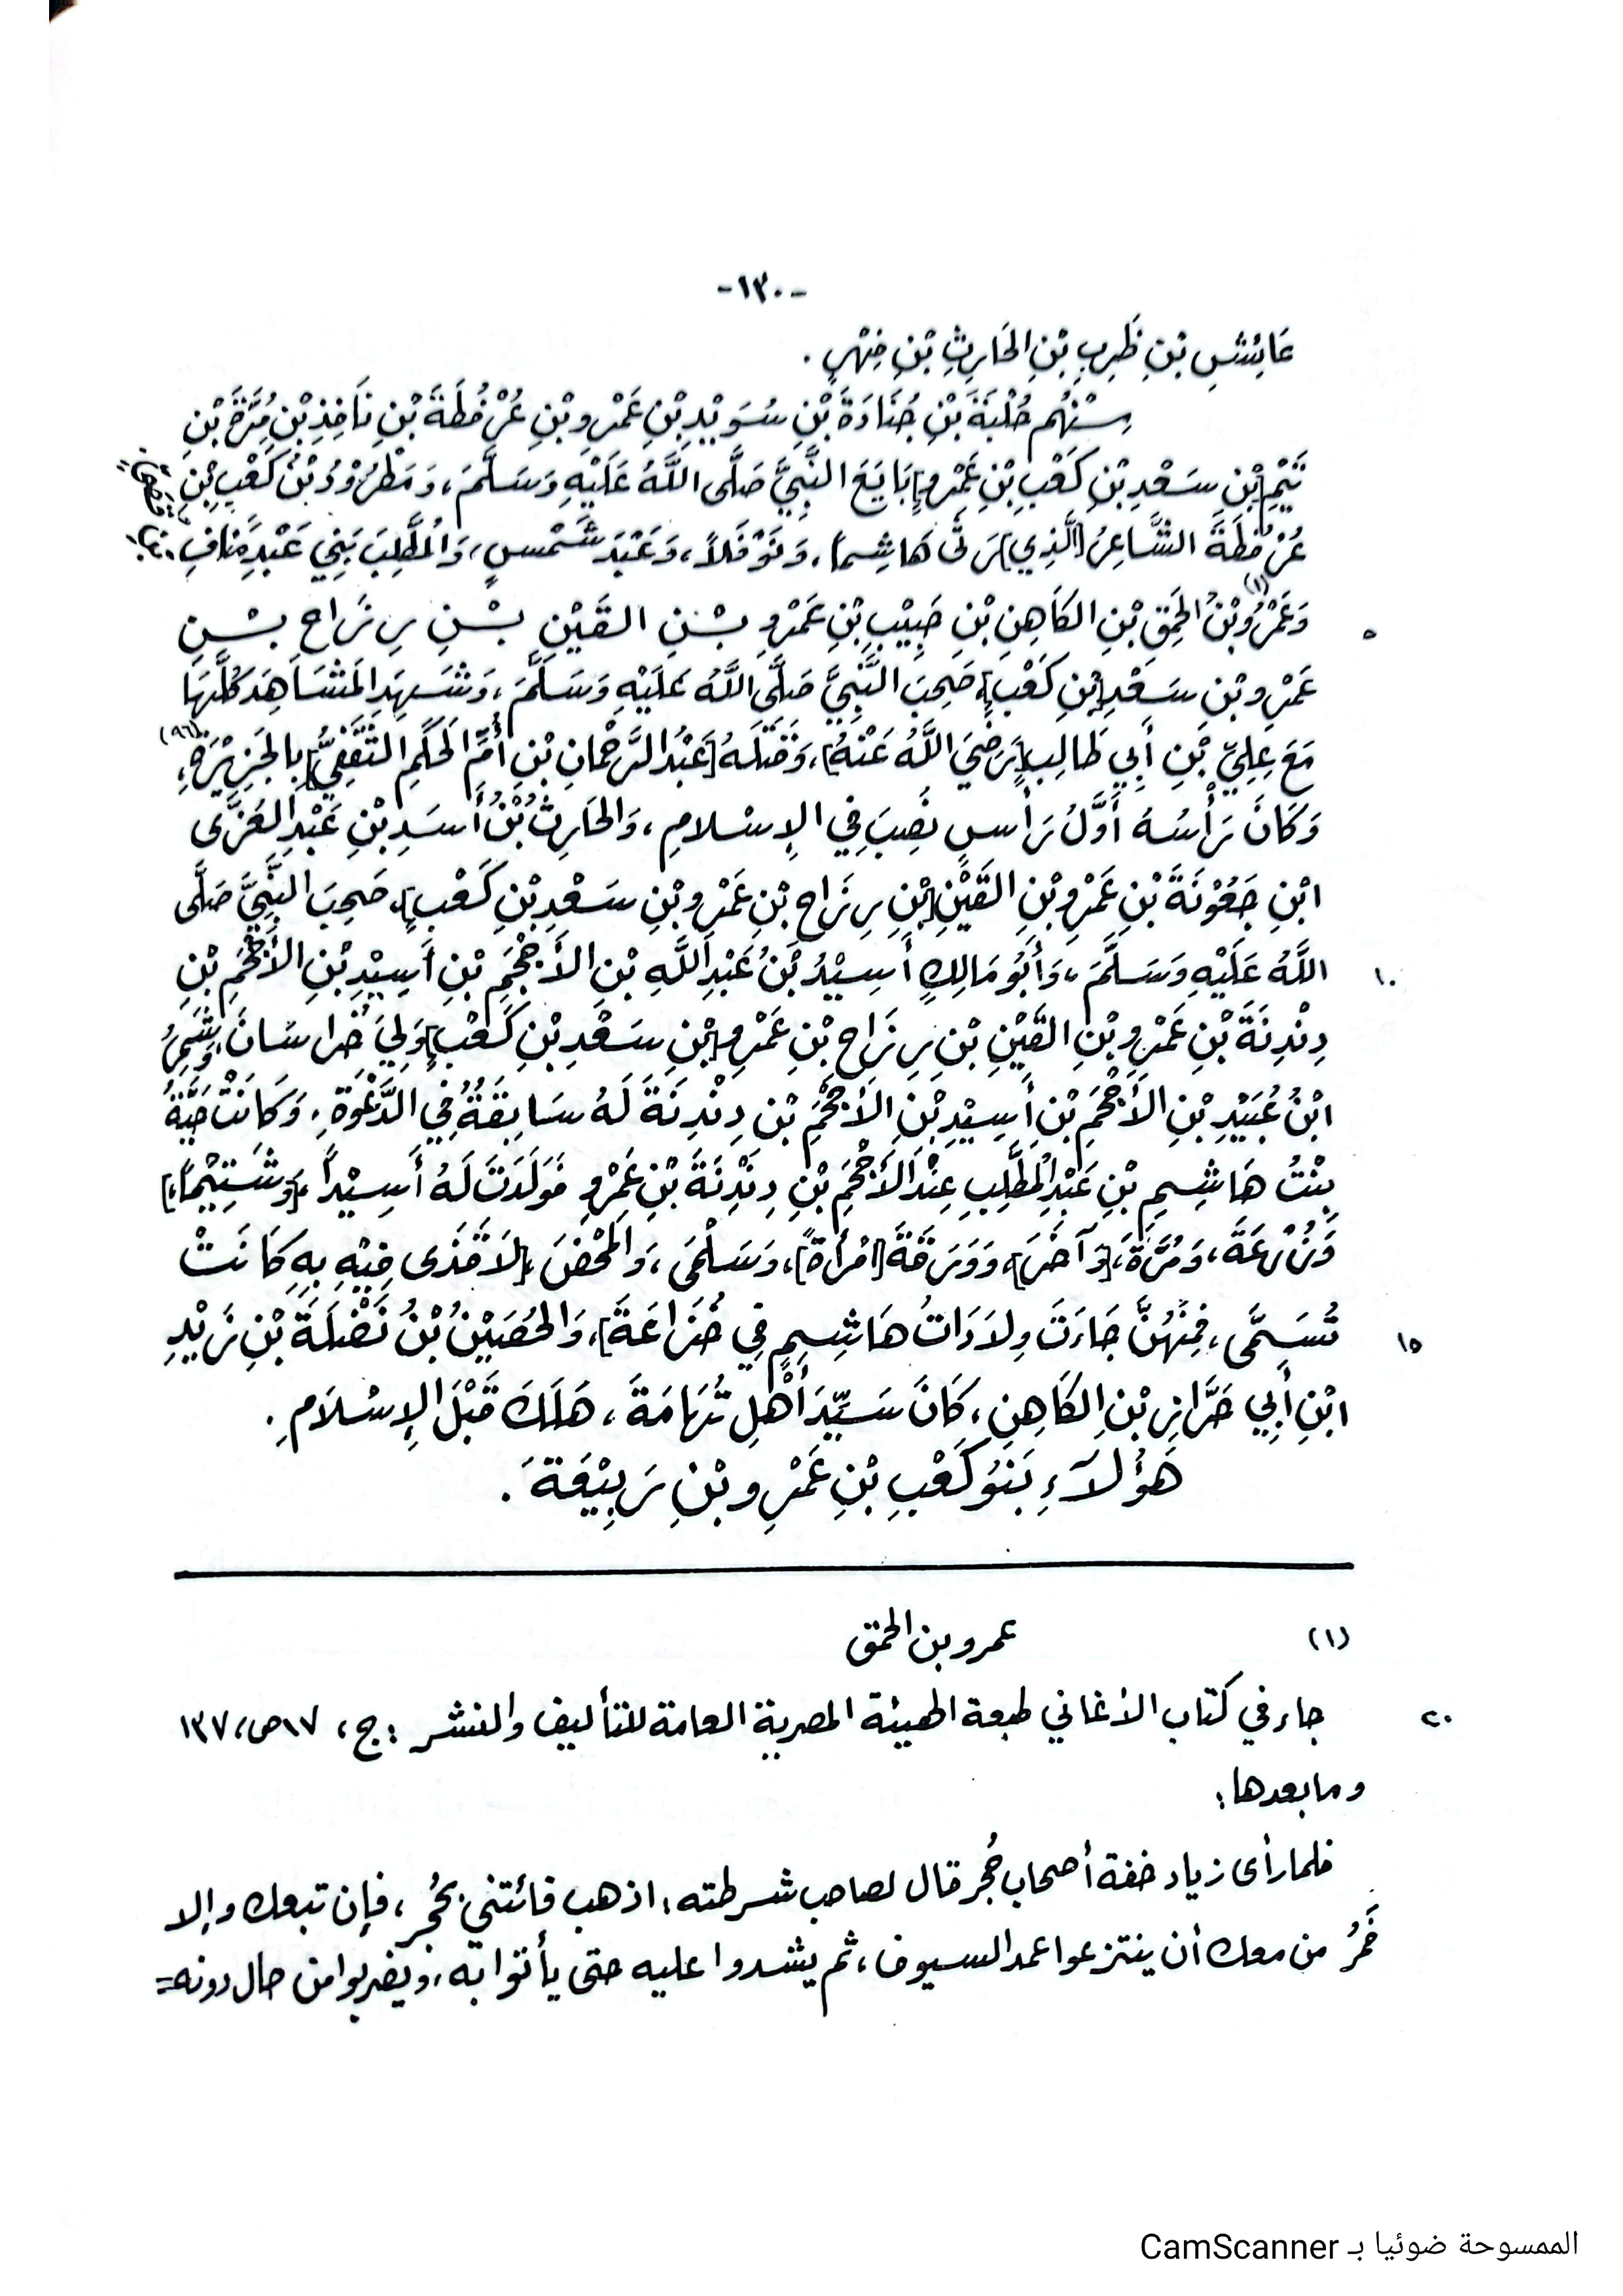 -١٣٠-
عَائِشِ بْنِ ظَرِبِ بْنِ الحَارِثِ بْنِ فِهْرٍ .
مِنْهُم حُلْبَةُ بْنِ جُنَادَةَ بْنِ سُوَيْدِ بْنِ عَمْرِو بْنِ عُرْفُطَةَ بْنِ نَافِذِ بْنِ مُرَّةَ بْنِ
تَيْمِ [بْنِ سَعْدِ بْنِ كَعْبِ بْنِ عَمْرٍو] بَايَعَ النَّبِيَّ صَلَّى اللَّهُ عَلَيْهِ وَسَلَّمَ، وَمَطْرُوْدُ بْنُ كَعْبِ بْنِ
عُرْفُطَةَ الشَّاعِرُ [الَّذِي] رَثَى هَاشِماً، وَنَوْفَلاً، وَعَبْدَ شَمْسٍ، وَالمُطَّلِبَ بَنِي عَبْدِ مَنَافِ
٥ وَعَمْرُو بْنُ(١) الحَمِقِ بْنِ الكَاهِنِ بْنِ حَبِيْبِ بْنِ عَمْرِو بْنِ القَيْنِ بْنِ رِزَاحِ بْنِ
عَمْرِو بْنِ سَعْدِ [بْنِ كَعْبٍ]، صَحِبَ النَّبِيَّ صَلَّى اللَّهُ عَلَيْهِ وَسَلَّمَ، وَشَهِدَ المَشَاهِدَ كُلَّهَا
مَعَ عَلِيِّ بْنِ أَبِي طَالِبٍ [رَضِيَ اللَّهُ عَنْهُ]، وَقَتَلَهُ [عَبْدُ الرَّحْمَانِ بْنِ أُمِّ الحَكَمِ الثَّقَفِيُّ] بِالجَزِيْرَةِ،
وَكَانَ رَأْسُهُ أَوَّلُ رَأْسٍ نُصِبَ فِي الإِسْلامِ، وَالحَارِثُ بْنُ أَسَدِ بْنِ عَبْدِ العُزَّى
ابْنِ جَعْوَنَةَ بْنِ عَمْرِو بْنِ القَيْنِ [بْنِ رِزَاحِ بْنِ عَمْرِو بْنِ سَعْدِ بْنِ كَعْبٍ]، صَحِبَ النَّبِيَّ صَلَّى
١٠ اللَّهُ عَلَيْهِ وَسَلَّمَ، وَأَبُو مَالِكٍ أَسِيْدُ بْنُ عَبْدِ اللَّهِ بْنِ الأَجْحَمِ بْنِ أَسِيْدِ بْنِ الأَجْحَمِ بْنِ
دِنْدِنَةَ بْنِ عَمْرِو بْنِ القَيْنِ بْنِ رِزَاحِ بْنِ عَمْرِو [بْنِ سَعْدِ بْنِ كَعْبٍ] وَلِيَ خُراسَانَ،
ابْنُ عُبَيْدِ بْنِ الأَجْحَمِ بْنِ أَسِيْدِ بْنِ الأَجْحَمِ بْنِ دِنْدِنَةَ لَهُ سَابِقَةٌ فِي الدَّعْوَةِ، وَكَانَتْ حَيَّةُ
بِنْتُ هَاشِمِ بْنِ عَبْدِ المُطَّلِبِ عِنْدَ الأَجْحَمِ بْنِ دِنْدِنَةَ بْنِ عَمْرٍو فَوَلَدَتْ لَهُ أَسِيْداً، [وَشَتِيْماً،]
وَزُرْعَةَ، وَمُرَّةَ، [وَآخَرَ]، وَوَرَقَةَ [امْرَأَةً]، وَسَلْمَى، وَالمَحْضَ، [لاَ قَذَى فِيْهِ بِهِ كَانَتْ
١٥ تُسَمَّى، فَمِنْهُنَّ جَاءَتْ وِلاَدَاتُ هَاشِمٍ فِي خُزَاعَةَ]، وَالحُصَيْنُ بْنُ نَضْلَةَ بْنِ زَيْدِ
ابْنِ أَبِي حَرَّازِ بْنِ الكَاهِنِ، كَانَ سَيِّدَ أَهْلِ تُهَامَةَ، هَلَكَ قَبْلَ الإِسْلاَمِ .
هَؤُلآءِ بَنُو كَعْبِ بْنِ عَمْرِو بْنِ رَبِيْعَةَ .
(١) عمرو بن الحمق
٢٠ جاء في كتاب الأغاني طبعة الهيئة المصرية العامة للتأليف والنشر : ج، ١٧ ص، ١٣٧
وما بعدها :
فلما رأى زياد خفة أصحاب حُجر قال لصاحب شرطته : اذهب فائتني بحُجر، فإن تبعك وإلا
فَمُرْ من معك أن ينتزعوا عمد السيوف، ثم يشدوا عليه حتى يأتوا به، ويضربوا من حال دونه =
الممسوحة ضوئيا بـ CamScanner